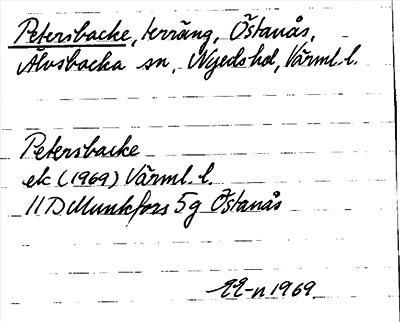 Petersbacke, terräng, Östanås,
Älvsbacka sn, Nyedshd, Värml. l.
Petersbacke
ek (1969) Värml. l.
11D Munkfors 5g Östanås
EE-n 1969